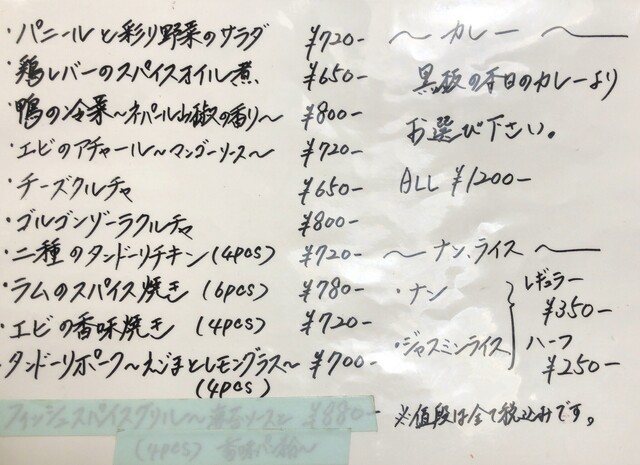 ・パニールと彩り野菜のサラダ ¥720-
・鶏レバーのスパイスオイル煮 ¥650-
・鴨の冷菜～ネパール山椒の香り～ ¥800-
・エビのアチャール～マンゴーソース～ ¥720-
・チーズクルチャ ¥650-
・ゴルゴンゾーラクルチャ ¥800-
・二種のタンドーリチキン (4pcs) ¥720-
・ラムのスパイス焼き (6pcs) ¥780-
・エビの香味焼き (4pcs) ¥720-
・タンドーリポーク～えごまとレモングラス～ ¥700-
(4pcs)
フィッシュスパイスグリル～ソースと ¥880-
(4pcs) 香味パン粉～
～ カレー ～
黒板の本日のカレーより
お選び下さい。
ALL ¥1200-
～ ナン、ライス ～
・ナン
・ジャスミンライス
レギュラー
¥350-
ハーフ
¥250-
※値段は全て税込みです。